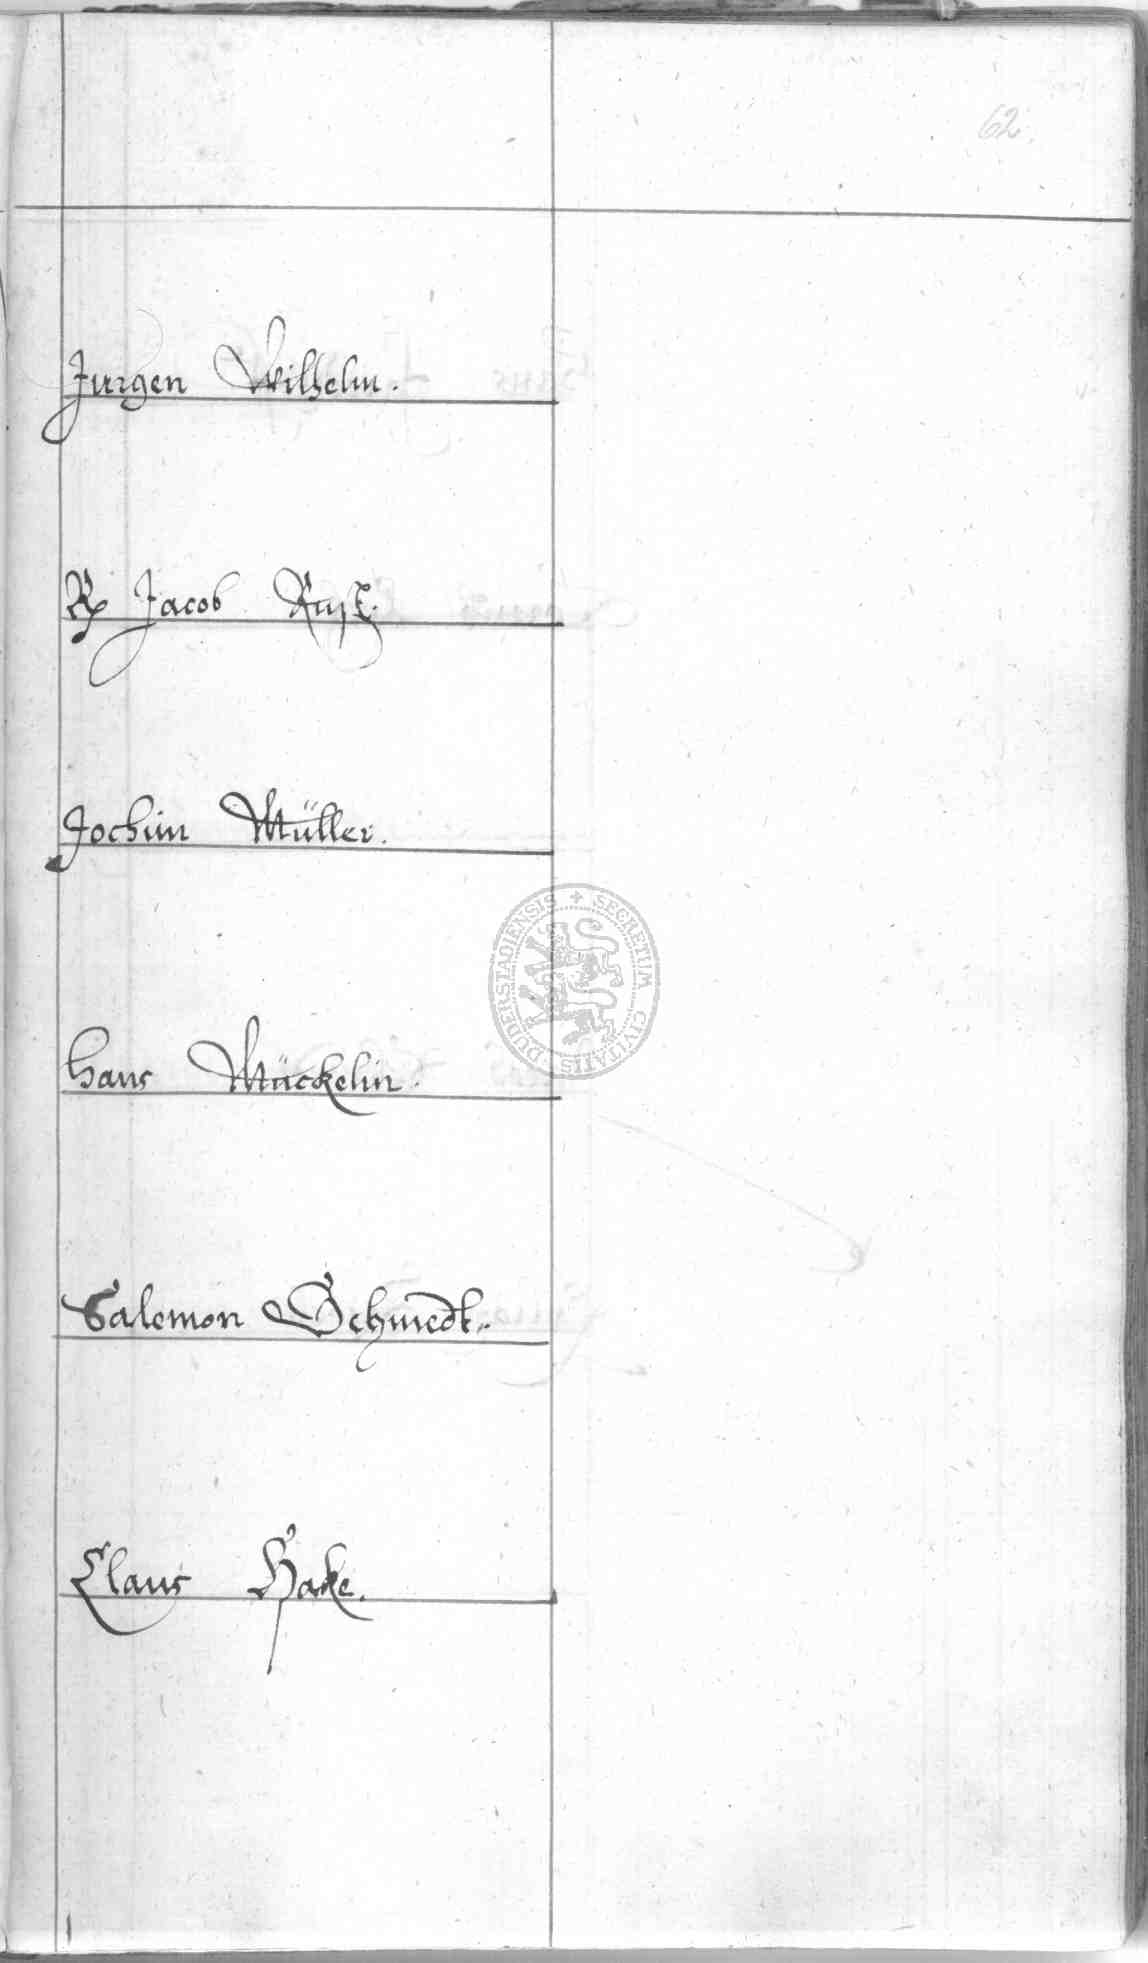 62.
Jurgen Wilhelm.
Jacob
Jochim Müller.
Hans Mückelin.
SECRETUM CIVITATIS DUDERSTADIENSIS
Salomon Schmedt.
Claus Hake.